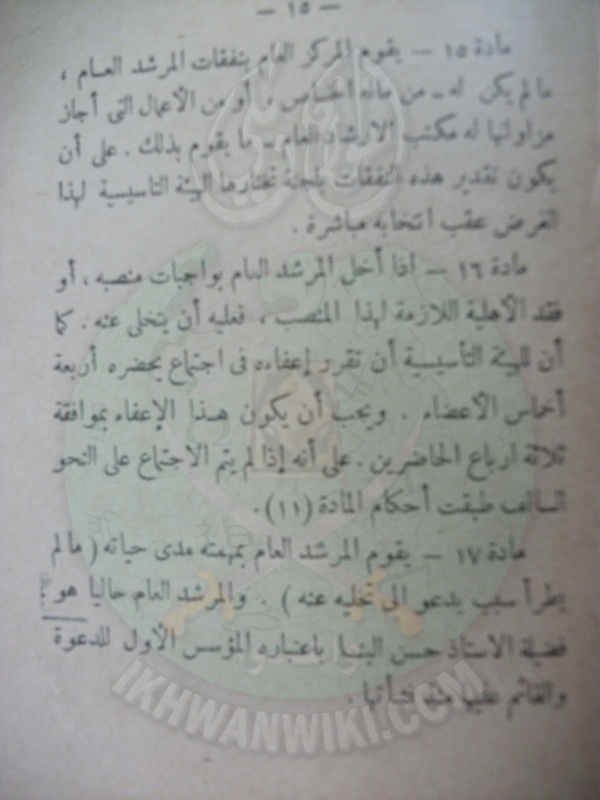 — ١٥ —
مادة ١٥ — يقوم المركز العام بنفقات المرشد العام ،
مالم يكن له ــ من ماله الخاص ، أو من الأعمال التى أجاز
مزاولتها له مكتب الارشاد العام ــ ما يقوم بذلك . على أن
يكون تقدير هذه النفقات بلجنة تختارها الهيئة التأسيسية لهذا
الغرض عقب انتخابه مباشرة .
مادة ١٦ — اذا أخل المرشد العام بواجبات منصبه ، أو
فقد الأهلية اللازمة لهذا المنصب ، فعليه أن يتخلى عنه . كما
أن للهيئة التأسيسية أن تقرر إعفاءه فى اجتماع يحضره أربعة
أخماس الأعضاء . ويجب أن يكون هذا الإعفاء بموافقة
ثلاثة ارباع الحاضرين . على أنه إذا لم يتم الاجتماع على النحو
السالف طبقت أحكام المادة (١١) .
مادة ١٧ — يقوم المرشد العام بمهمته مدى حياته ( مالم
يطرأ سبب يدعو الى تخليه عنه ) . والمرشد العام حاليا هو
فضيلة الاستاذ حسن البنا باعتباره المؤسس الأول للدعوة
والقائم عليها منذ نشأتها .
IKHWANWIKI.COM